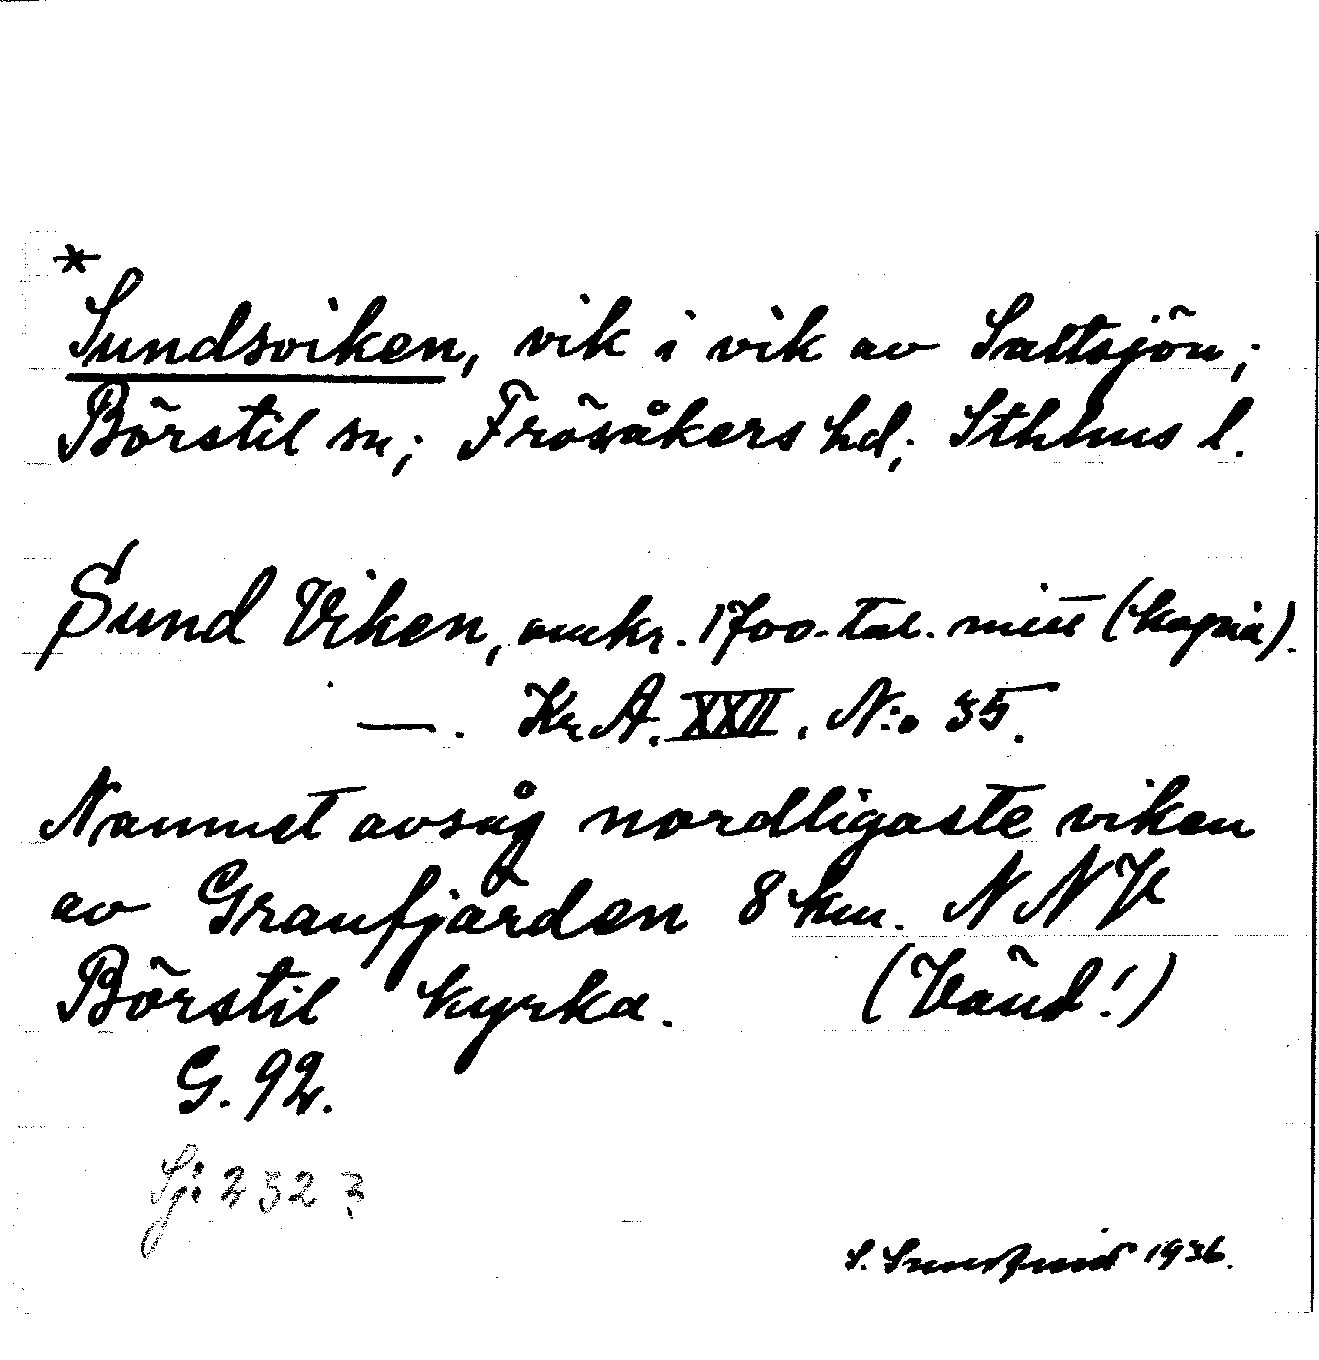 *
Sundsviken, vik i vik av Saltsjön;
Börstil sn; Frösåkers hd; Sthlms l.
Sund Viken, omkr. 1700-tal. mitt (kopia).
—. Kr. A. XXII. N:o 35.
Namnet avsåg nordligaste viken
av Granfjärden 8 km. NNV
Börstil kyrka. (Vänd!)
G. 92.
Sj: 232 ?
S. 1936.